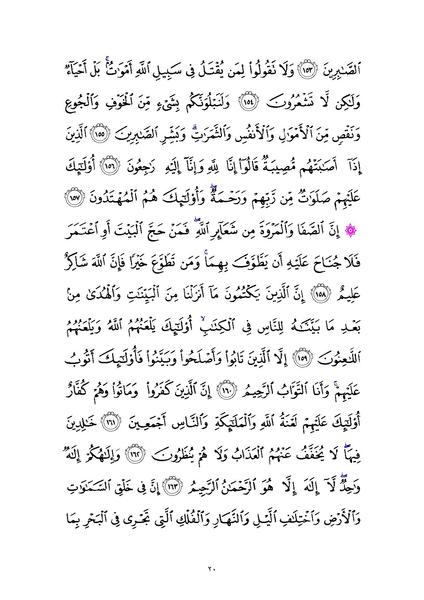 ٱلصَّٰبِرِينَ ١٥٣ وَلَا تَقُولُوا۟ لِمَن يُقْتَلُ فِى سَبِيلِ ٱللَّهِ أَمْوَٰتٌۢ ۚ بَلْ أَحْيَآءٌ
وَلَٰكِن لَّا تَشْعُرُونَ ١٥٤ وَلَنَبْلُوَنَّكُم بِشَىْءٍ مِّنَ ٱلْخَوْفِ وَٱلْجُوعِ
وَنَقْصٍ مِّنَ ٱلْأَمْوَٰلِ وَٱلْأَنفُسِ وَٱلثَّمَرَٰتِ ۗ وَبَشِّرِ ٱلصَّٰبِرِينَ ١٥٥ ٱلَّذِينَ
إِذَآ أَصَٰبَتْهُم مُّصِيبَةٌ قَالُوٓا۟ إِنَّا لِلَّهِ وَإِنَّآ إِلَيْهِ رَٰجِعُونَ ١٥٦ أُو۟لَٰٓئِكَ
عَلَيْهِمْ صَلَوَٰتٌ مِّن رَّبِّهِمْ وَرَحْمَةٌ ۖ وَأُو۟لَٰٓئِكَ هُمُ ٱلْمُهْتَدُونَ ١٥٧
۞ إِنَّ ٱلصَّفَا وَٱلْمَرْوَةَ مِن شَعَآئِرِ ٱللَّهِ ۖ فَمَنْ حَجَّ ٱلْبَيْتَ أَوِ ٱعْتَمَرَ
فَلَا جُنَاحَ عَلَيْهِ أَن يَطَّوَّفَ بِهِمَا ۚ وَمَن تَطَوَّعَ خَيْرًا فَإِنَّ ٱللَّهَ شَاكِرٌ
عَلِيمٌ ١٥٨ إِنَّ ٱلَّذِينَ يَكْتُمُونَ مَآ أَنزَلْنَا مِنَ ٱلْبَيِّنَٰتِ وَٱلْهُدَىٰ مِنۢ
بَعْدِ مَا بَيَّنَّٰهُ لِلنَّاسِ فِى ٱلْكِتَٰبِ ۙ أُو۟لَٰٓئِكَ يَلْعَنُهُمُ ٱللَّهُ وَيَلْعَنُهُمُ
ٱللَّٰعِنُونَ ١٥٩ إِلَّا ٱلَّذِينَ تَابُوا۟ وَأَصْلَحُوا۟ وَبَيَّنُوا۟ فَأُو۟لَٰٓئِكَ أَتُوبُ
عَلَيْهِمْ ۚ وَأَنَا ٱلتَّوَّابُ ٱلرَّحِيمُ ١٦٠ إِنَّ ٱلَّذِينَ كَفَرُوا۟ وَمَاتُوا۟ وَهُمْ كُفَّارٌ
أُو۟لَٰٓئِكَ عَلَيْهِمْ لَعْنَةُ ٱللَّهِ وَٱلْمَلَٰٓئِكَةِ وَٱلنَّاسِ أَجْمَعِينَ ١٦١ خَٰلِدِينَ
فِيهَا ۖ لَا يُخَفَّفُ عَنْهُمُ ٱلْعَذَابُ وَلَا هُمْ يُنظَرُونَ ١٦٢ وَإِلَٰهُكُمْ إِلَٰهٌ
وَٰحِدٌ ۖ لَّآ إِلَٰهَ إِلَّا هُوَ ٱلرَّحْمَٰنُ ٱلرَّحِيمُ ١٦٣ إِنَّ فِى خَلْقِ ٱلسَّمَٰوَٰتِ
وَٱلْأَرْضِ وَٱخْتِلَٰفِ ٱلَّيْلِ وَٱلنَّهَارِ وَٱلْفُلْكِ ٱلَّتِى تَجْرِى فِى ٱلْبَحْرِ بِمَا
٢٠